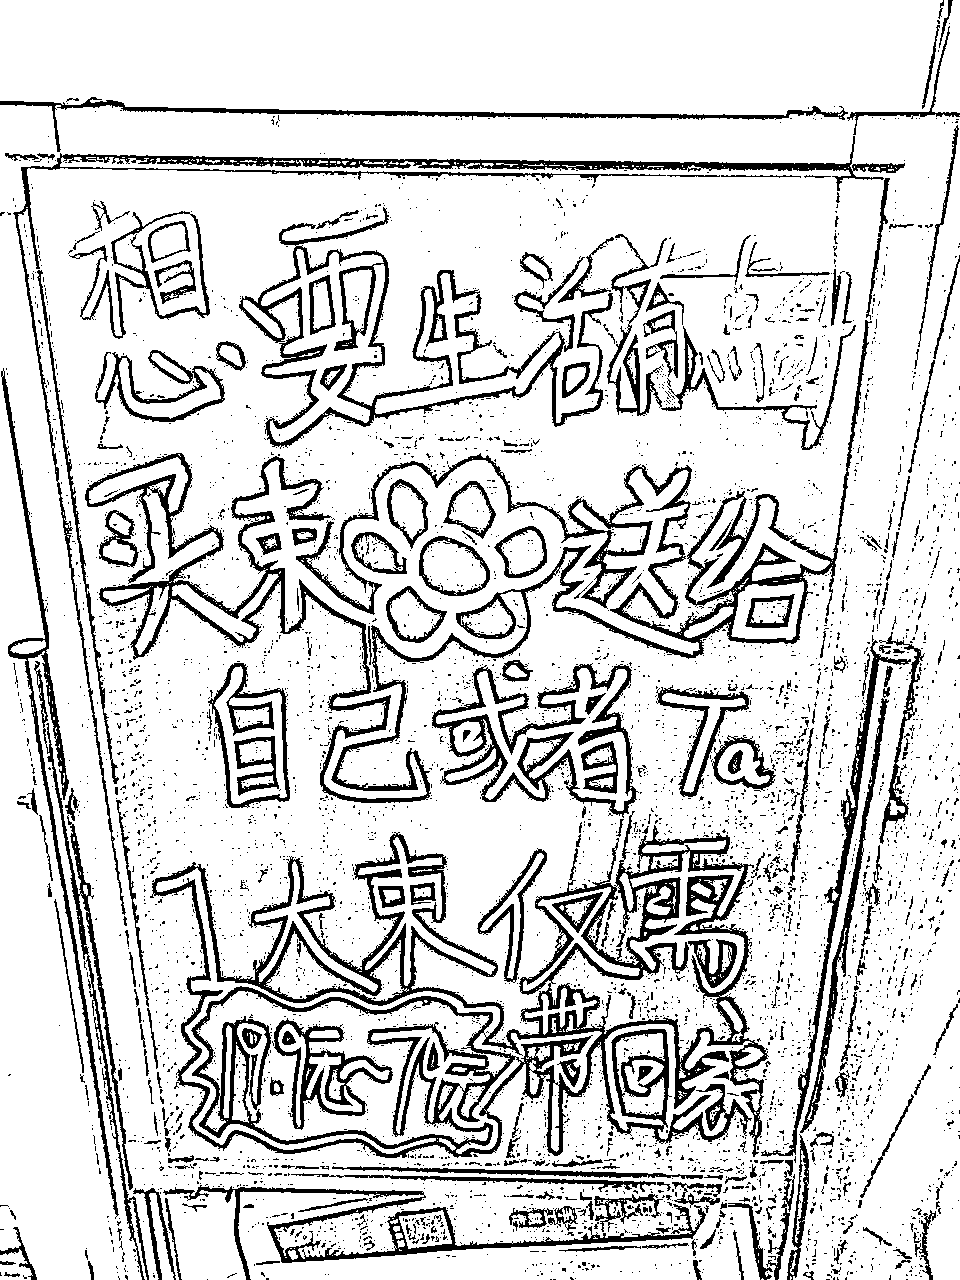 想要生活有点
买束送给
自己或者 Ta
1大束仅需
19.9元~79元带回家